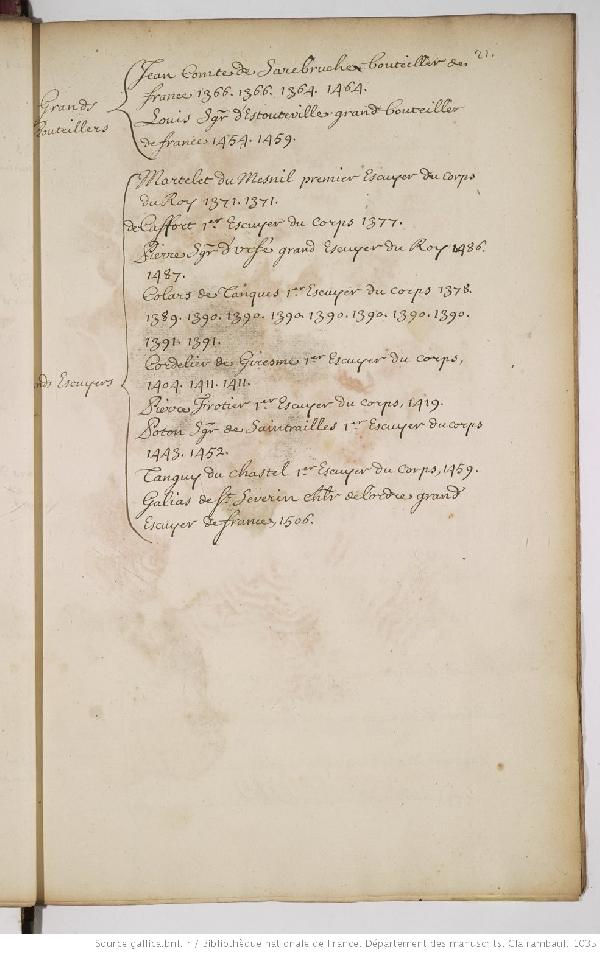 21.
Jean Comte de Sarebruche bouteiller de
france 1366. 1366. 1364. 1464.
Louis Sgr d'Estouteville grand bouteiller
de france 1454. 1459.
Grands
bouteillers
Martelet du Mesnil premier Escuyer du corps
du Roy 1371. 1371.
de Laffort 1er Escuyer du corps 1377.
Pierre Sgr d'Urfé grand Escuyer du Roy 1486.
1487.
Colars de Tanques 1er Escuyer du corps 1378.
1389. 1390. 1390. 1390. 1390. 1390. 1390. 1390.
1391. 1391.
Cordelier de Giresme 1er Escuyer du corps,
1404. 1411. 1411.
nds Escuyers
Pierre Frotier 1er Escuyer du corps, 1419.
Poton Sgr de Saintrailles 1er Escuyer du corps
1443. 1452.
Tanguy du Chastel 1er Escuyer du corps, 1459.
Galias de St Severin chlr de l'ordre grand
Escuyer de france, 1506.
Source gallica.bnf.fr / Bibliothèque nationale de France. Département des manuscrits. Clairambault 1035